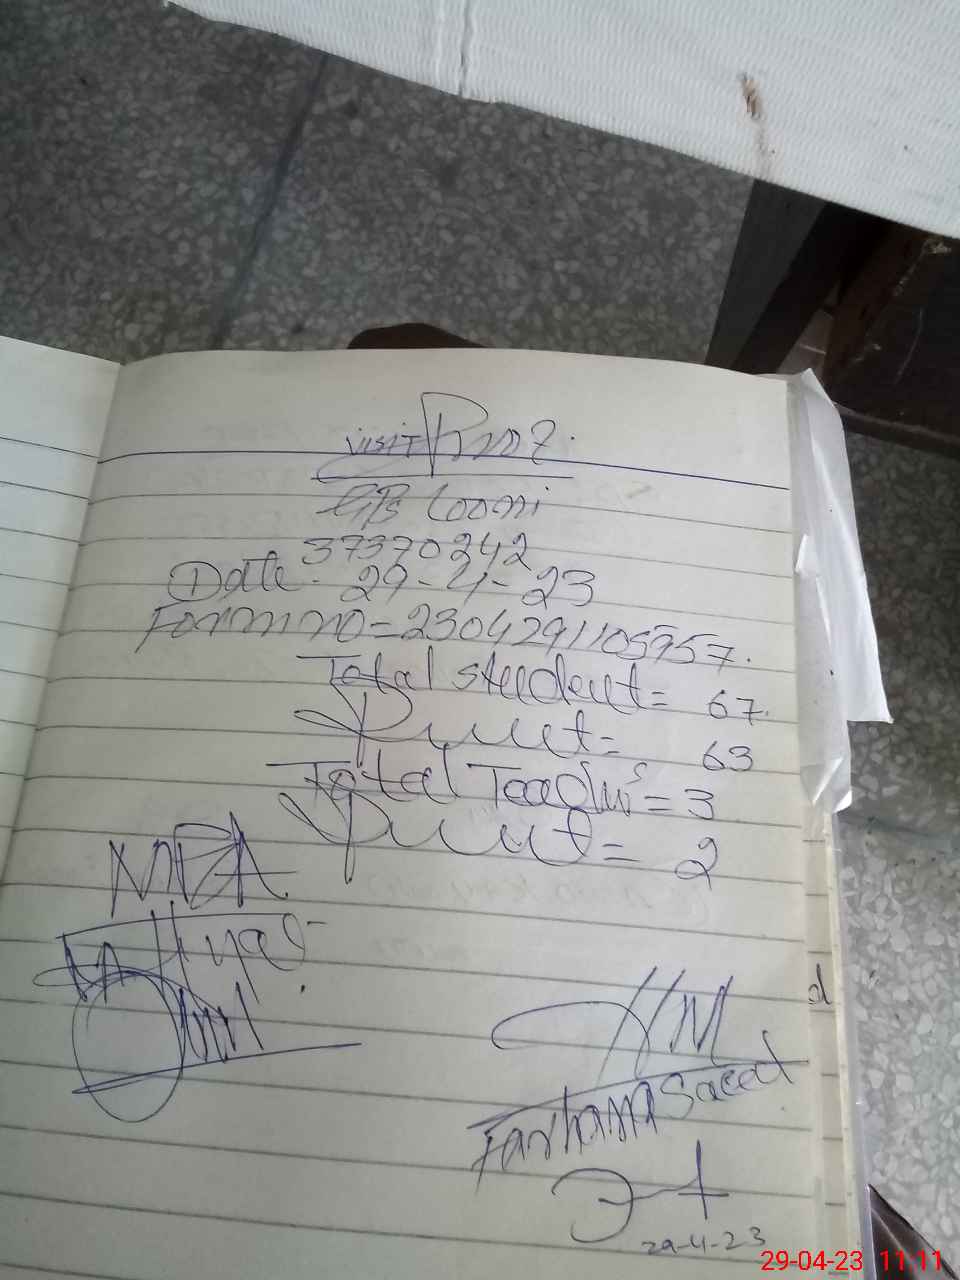 visit Proof.
GPS Loomi
37370242
Date. 29-4-23
Form no=2304291105957.
Total student= 67.
Present= 63
Total Teachers=3
Present= 2
MEA
M Ilyas
HM
Farhana Saeed
29-4-23
d
29-04-23 11:11